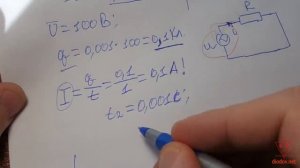 U=100В;
q=0,001·100=0,1Кл.
I=q/t=0,1/1=0,1А!
t₂=0,001с;
R
u
i
diodov.net